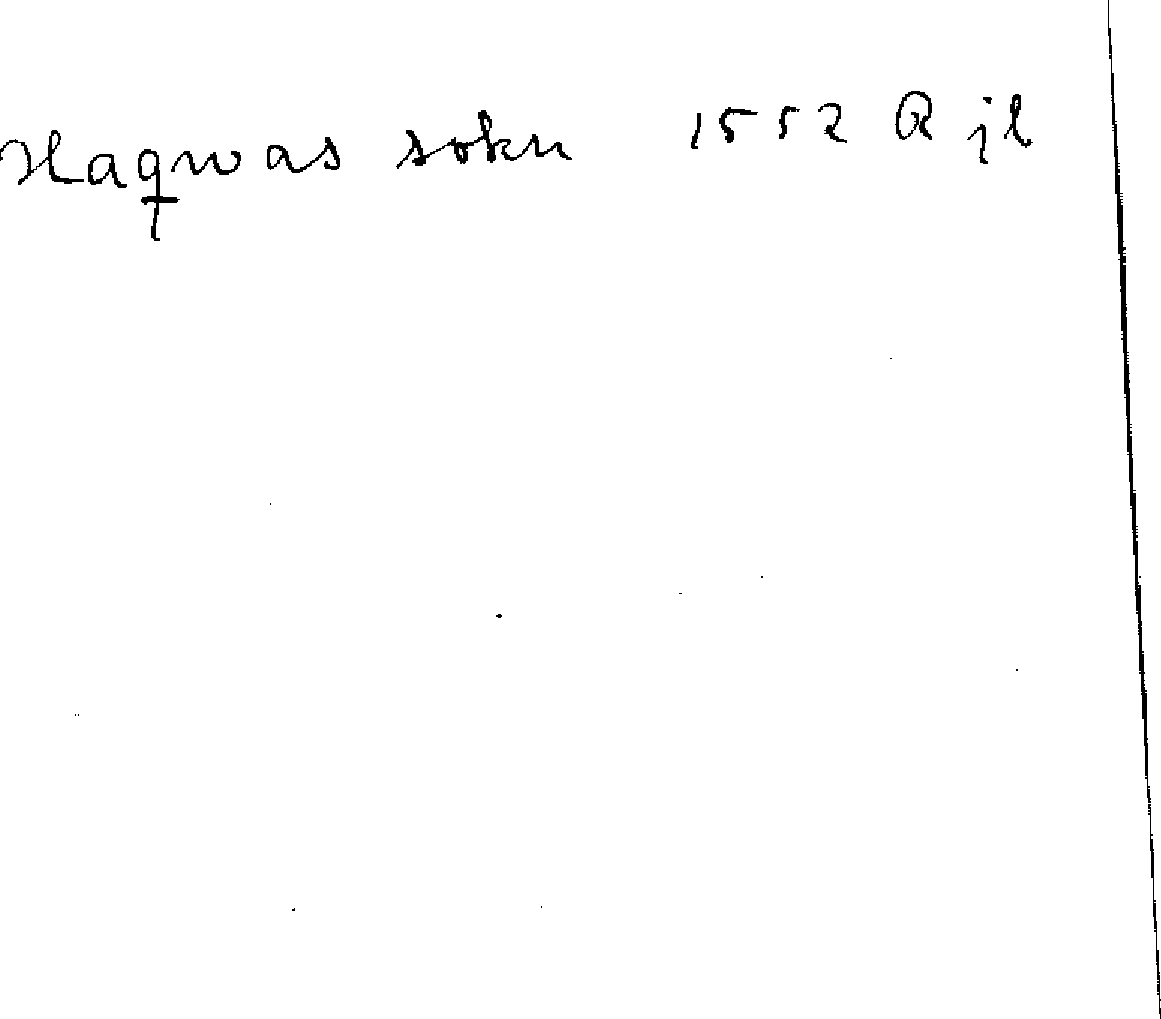 Haqwas sokn 1552 R jb